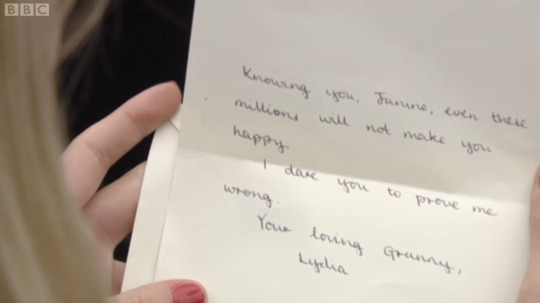 BBC
Knowing you, Janine, even these
millions will not make you
happy.
I dare you to prove me
wrong.
Your loving Granny,
Lydia